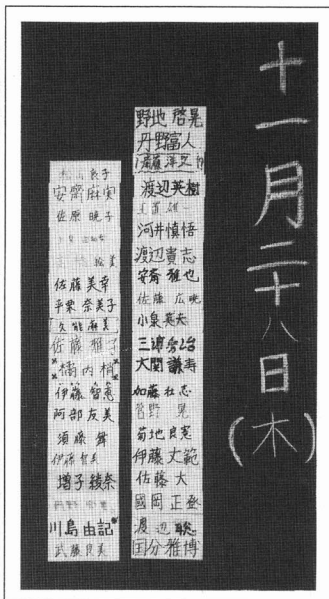 十一月二十八日(木)
野地 啓晃
丹野富人
渡辺英樹
河井慎悟
渡辺貴志
安斎 雅也
佐藤 広晩
小泉英夫
大関 議寿
加藤壮志
菅野 晃
菊地良寛
伊藤丈範
佐藤 大
國岡正登
渡辺 聡
国分雅博
安齋麻実
佐原 暁子
佐藤美幸
平栗奈美子
久能麻美
佐藤雅子
橘内梢
伊藤智恵
阿部友美
須藤舞
伊藤智美
増子綾奈
川島由記
武藤良美